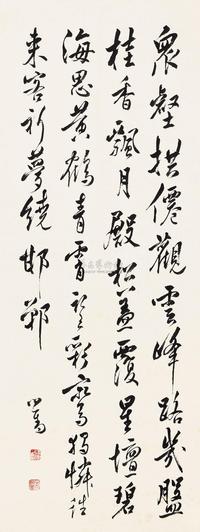 众壑拱僊觀雲峰路幾盤
桂香飄月殿松蓋覆星壇碧
海思黃鶴青霄彩鸞獨憐往
來客祈夢繞邯鄲
心畬